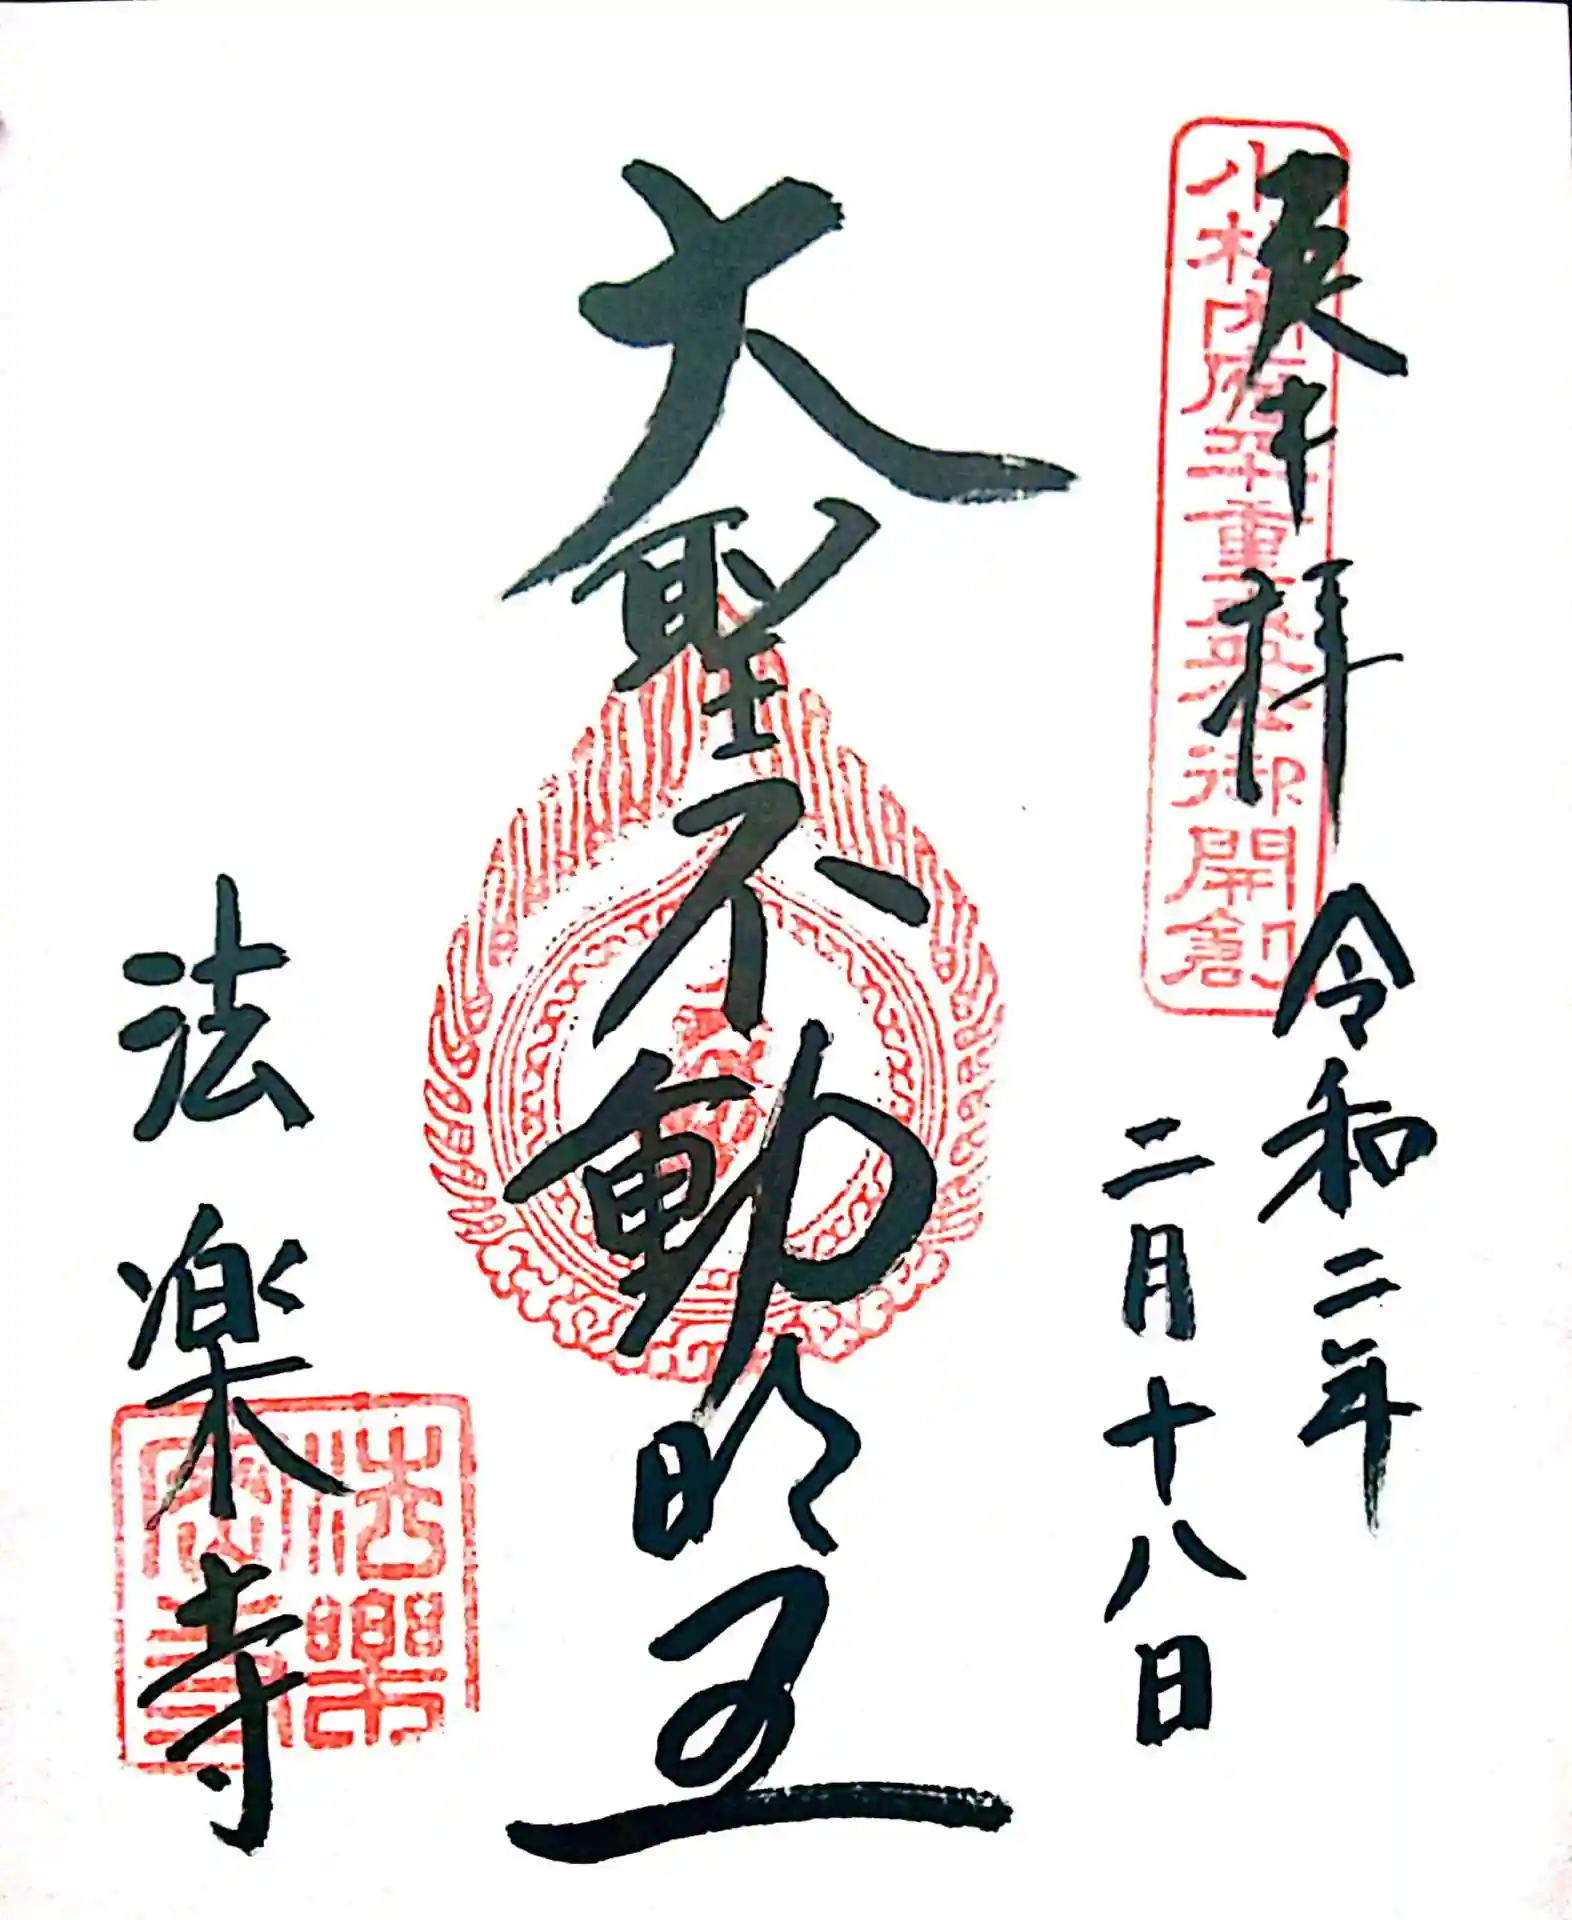 奉拝 令和二年
二月十八日
小松内府平重盛公御開創
大聖不動明王
法楽寺
法樂
密寺